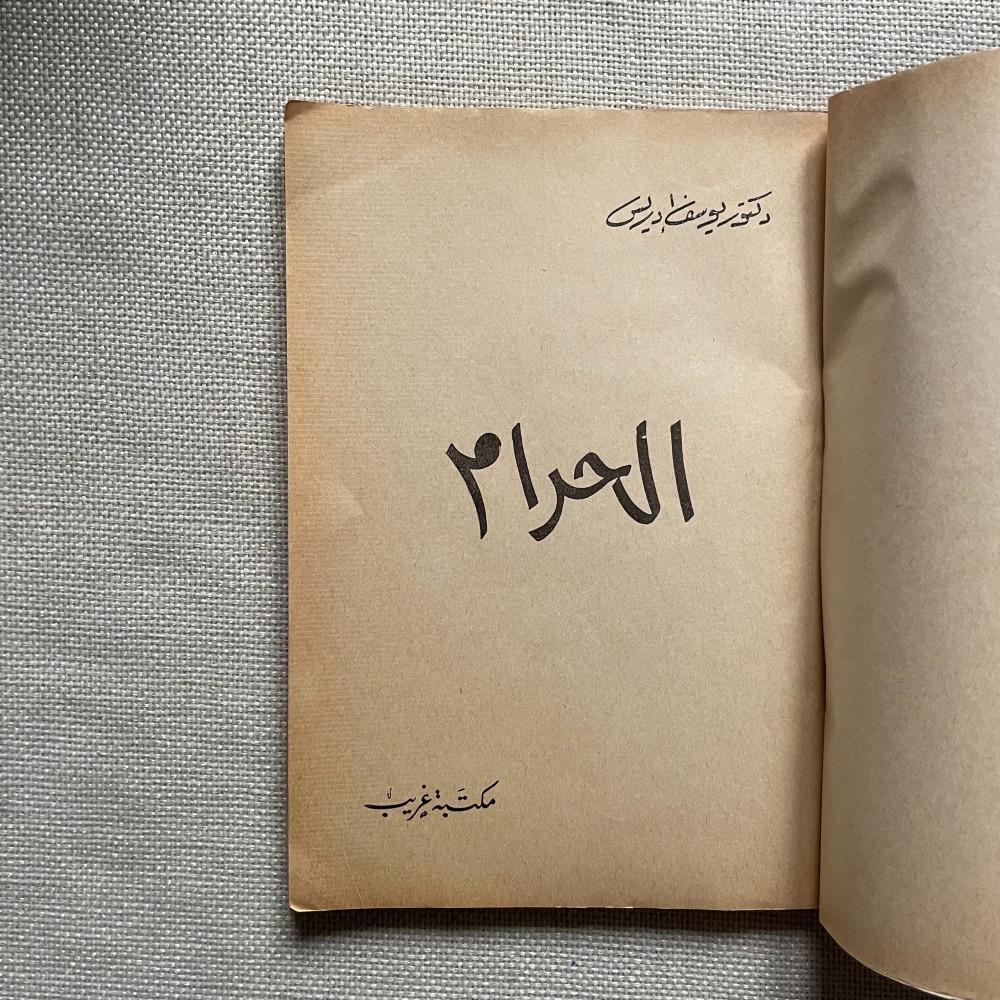 دكتور يوسف إدريس
الحرام
مكتبة غريب